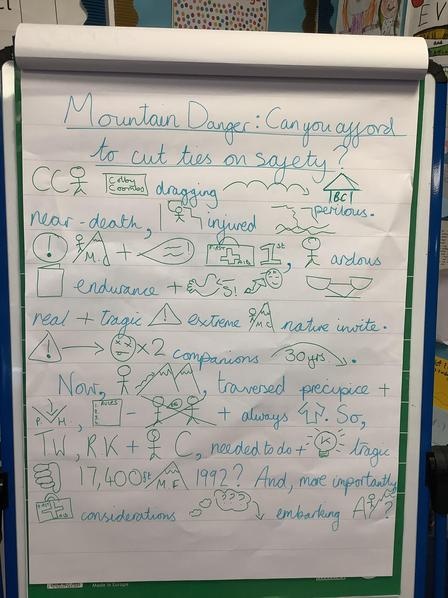 Mountain Danger: Can you afford
to cut ties on safety?
CC Colby Coombs dragging BC
near-death, injured perilous.
! M. + ! FIRST AID 1st, ardous
endurance + S!
real + tragic ! extreme M.C native invite.
! x2 companions 30yrs.
Now, , traversed precipice +
P. H., RULES 1- 2- 3- - + always . So,
TW, RK + C, needed to do + K tragic
17,400ft M F 1992? And, more importantly
FIRST AID considerations embarking A ?
Made in Europe